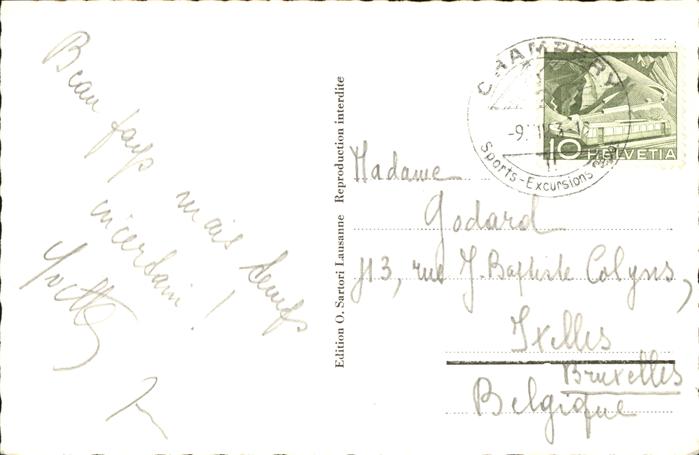 Beau pays mais temps
incertain !
Yvette
Edition O. Sartori Lausanne Reproduction interdite
CHAMPERY
Sports-Excursions
10 HELVETIA
Madame
Godard
113, rue J. Baptiste Colyns,
Ixelles
Bruxelles
Belgique